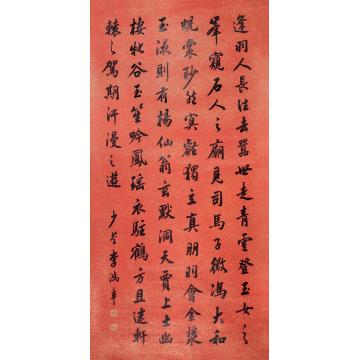 逢羽人長往去囂世走青雲登玉女之
峯窺石人之廟見司馬子微馮太和
蛻裳眇然冥壑獨立真朋羽會金漿
玉液則有楊仙翁玄默洞天賈上士幽
棲牝谷玉笙吟鳳瑤衣駐鶴方且迷軒
轅之駕期汗漫之遊
少荃李鴻章